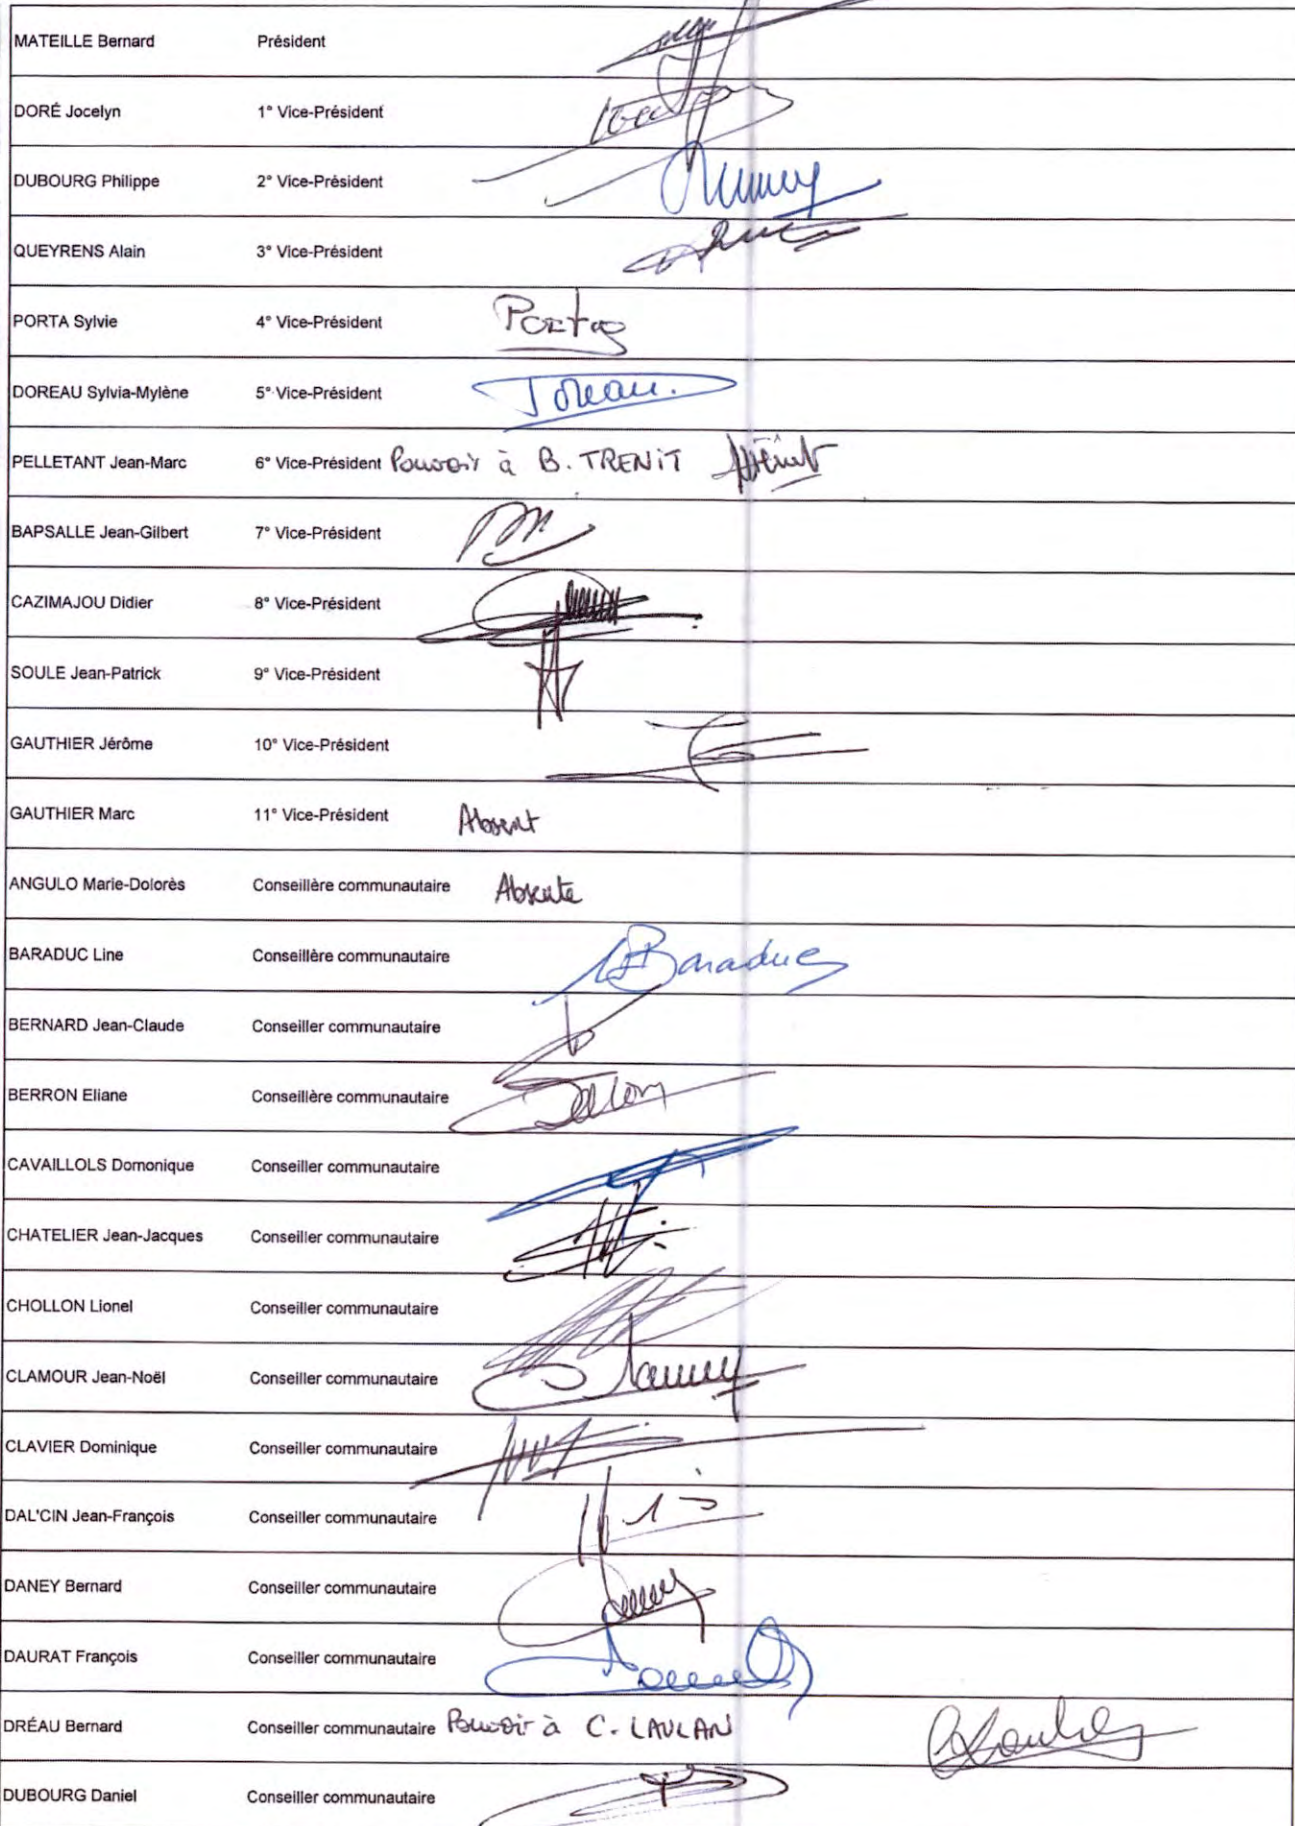 MATEILLE Bernard Président
DORÉ Jocelyn 1° Vice-Président
DUBOURG Philippe 2° Vice-Président
QUEYRENS Alain 3° Vice-Président
PORTA Sylvie 4° Vice-Président Porta
DOREAU Sylvia-Mylène 5° Vice-Président Doreau.
PELLETANT Jean-Marc 6° Vice-Président Pouvoir à B. TRENIT
BAPSALLE Jean-Gilbert 7° Vice-Président
CAZIMAJOU Didier 8° Vice-Président
SOULE Jean-Patrick 9° Vice-Président
GAUTHIER Jérôme 10° Vice-Président
GAUTHIER Marc 11° Vice-Président Absent
ANGULO Marie-Dolorès Conseillère communautaire Absente
BARADUC Line Conseillère communautaire Baraduc
BERNARD Jean-Claude Conseiller communautaire
BERRON Eliane Conseillère communautaire
CAVAILLOLS Domonique Conseiller communautaire
CHATELIER Jean-Jacques Conseiller communautaire
CHOLLON Lionel Conseiller communautaire
CLAMOUR Jean-Noël Conseiller communautaire
CLAVIER Dominique Conseiller communautaire
DAL'CIN Jean-François Conseiller communautaire
DANEY Bernard Conseiller communautaire
DAURAT François Conseiller communautaire
DRÉAU Bernard Conseiller communautaire Pouvoir à C. LAULAN
DUBOURG Daniel Conseiller communautaire